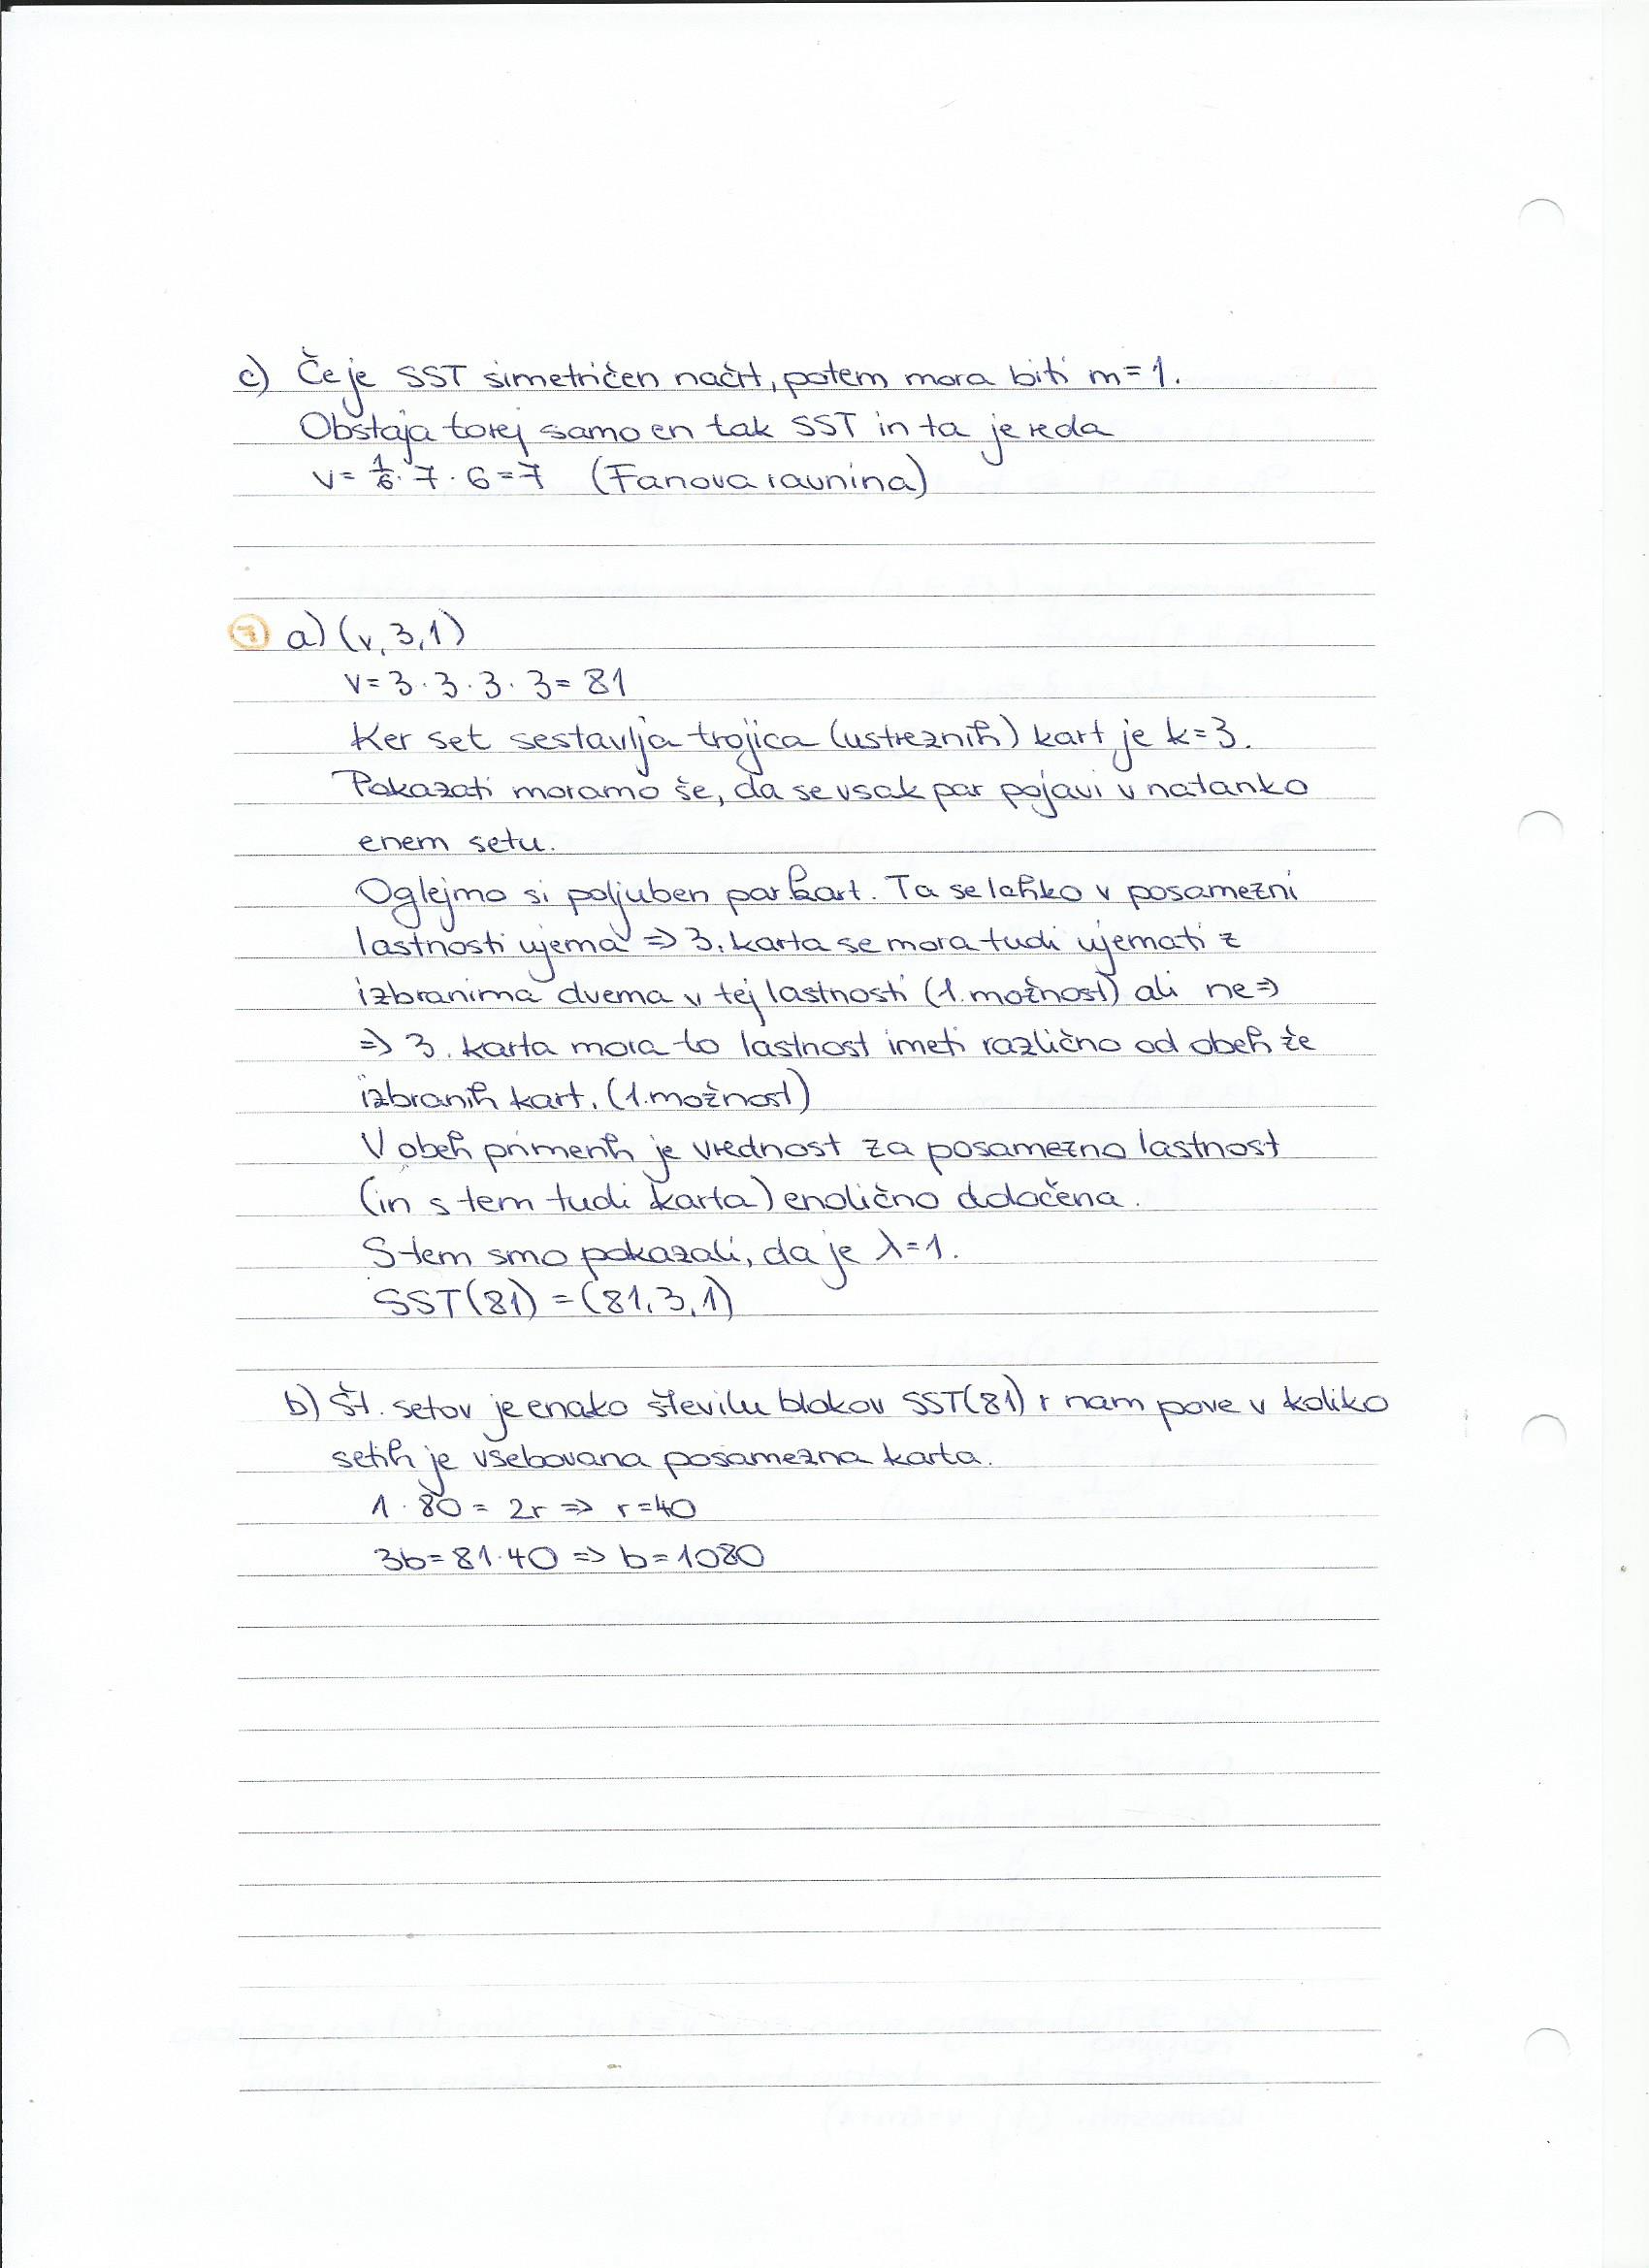 c) Če je SST simetričen načrt, potem mora biti m=1.
Obstaja torej samo en tak SST in ta je reda
v= 1/6 · 7 · 6 = 7 (Fanova ravnina)
7 a) (v, 3, 1)
v= 3 · 3 · 3 · 3 = 81
Ker set sestavlja trojica (ustreznih) kart je k=3.
Pokazati moramo še, da se vsak par pojavi v natanko
enem setu.
Oglejmo si poljuben par kart. Ta se lahko v posamezni
lastnosti ujema => 3. karta se mora tudi ujemati z
izbranima dvema v tej lastnosti (1. možnost) ali ne =>
=> 3. karta mora to lastnost imeti različno od obeh že
izbranih kart. (1. možnost)
V obeh primerih je vrednost za posamezno lastnost
(in s tem tudi karta) enolično določena.
S tem smo pokazali, da je λ=1.
SST(81) = (81, 3, 1)
b) Št. setov je enako številu blokov SST(81) r nam pove v koliko
setih je vsebovana posamezna karta.
1 · 80 = 2r => r=40
3b = 81 · 40 => b = 1080